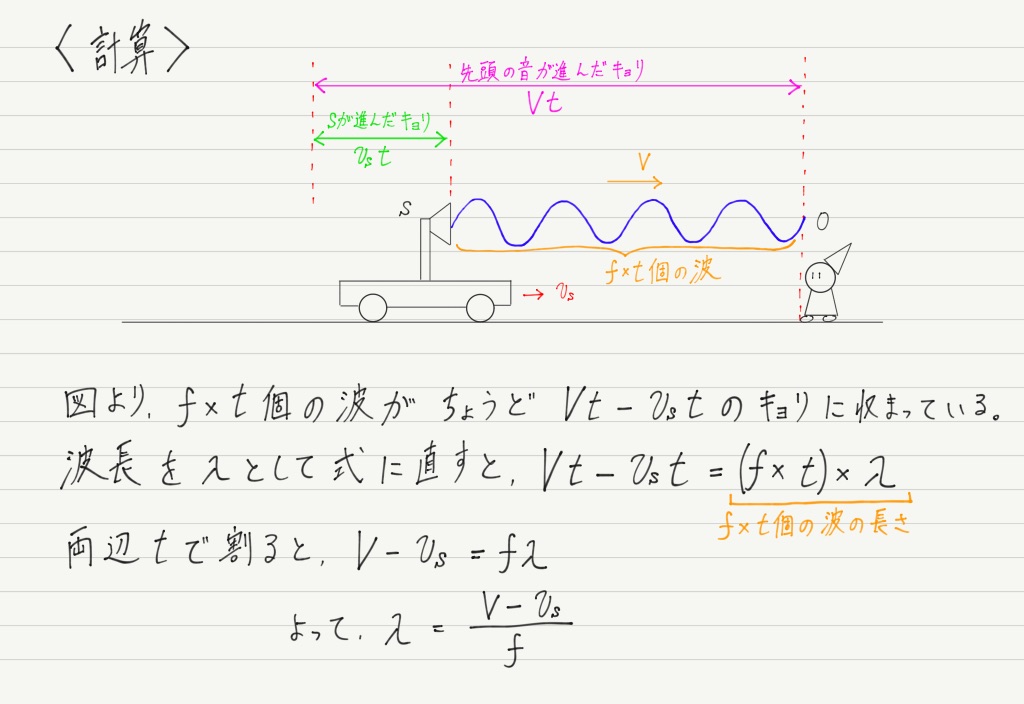 〈計算〉
先頭の音が進んだキョリ
Vt
Sが進んだキョリ
vₛt
V
S
O
f×t個の波
vₛ
図より、f×t個の波がちょうどVt－vₛtのキョリに収まっている。
波長をλとして式に直すと、Vt－vₛt＝(f×t)×λ
f×t個の波の長さ
両辺tで割ると、V－vₛ＝fλ
よって、λ＝(V－vₛ)/f